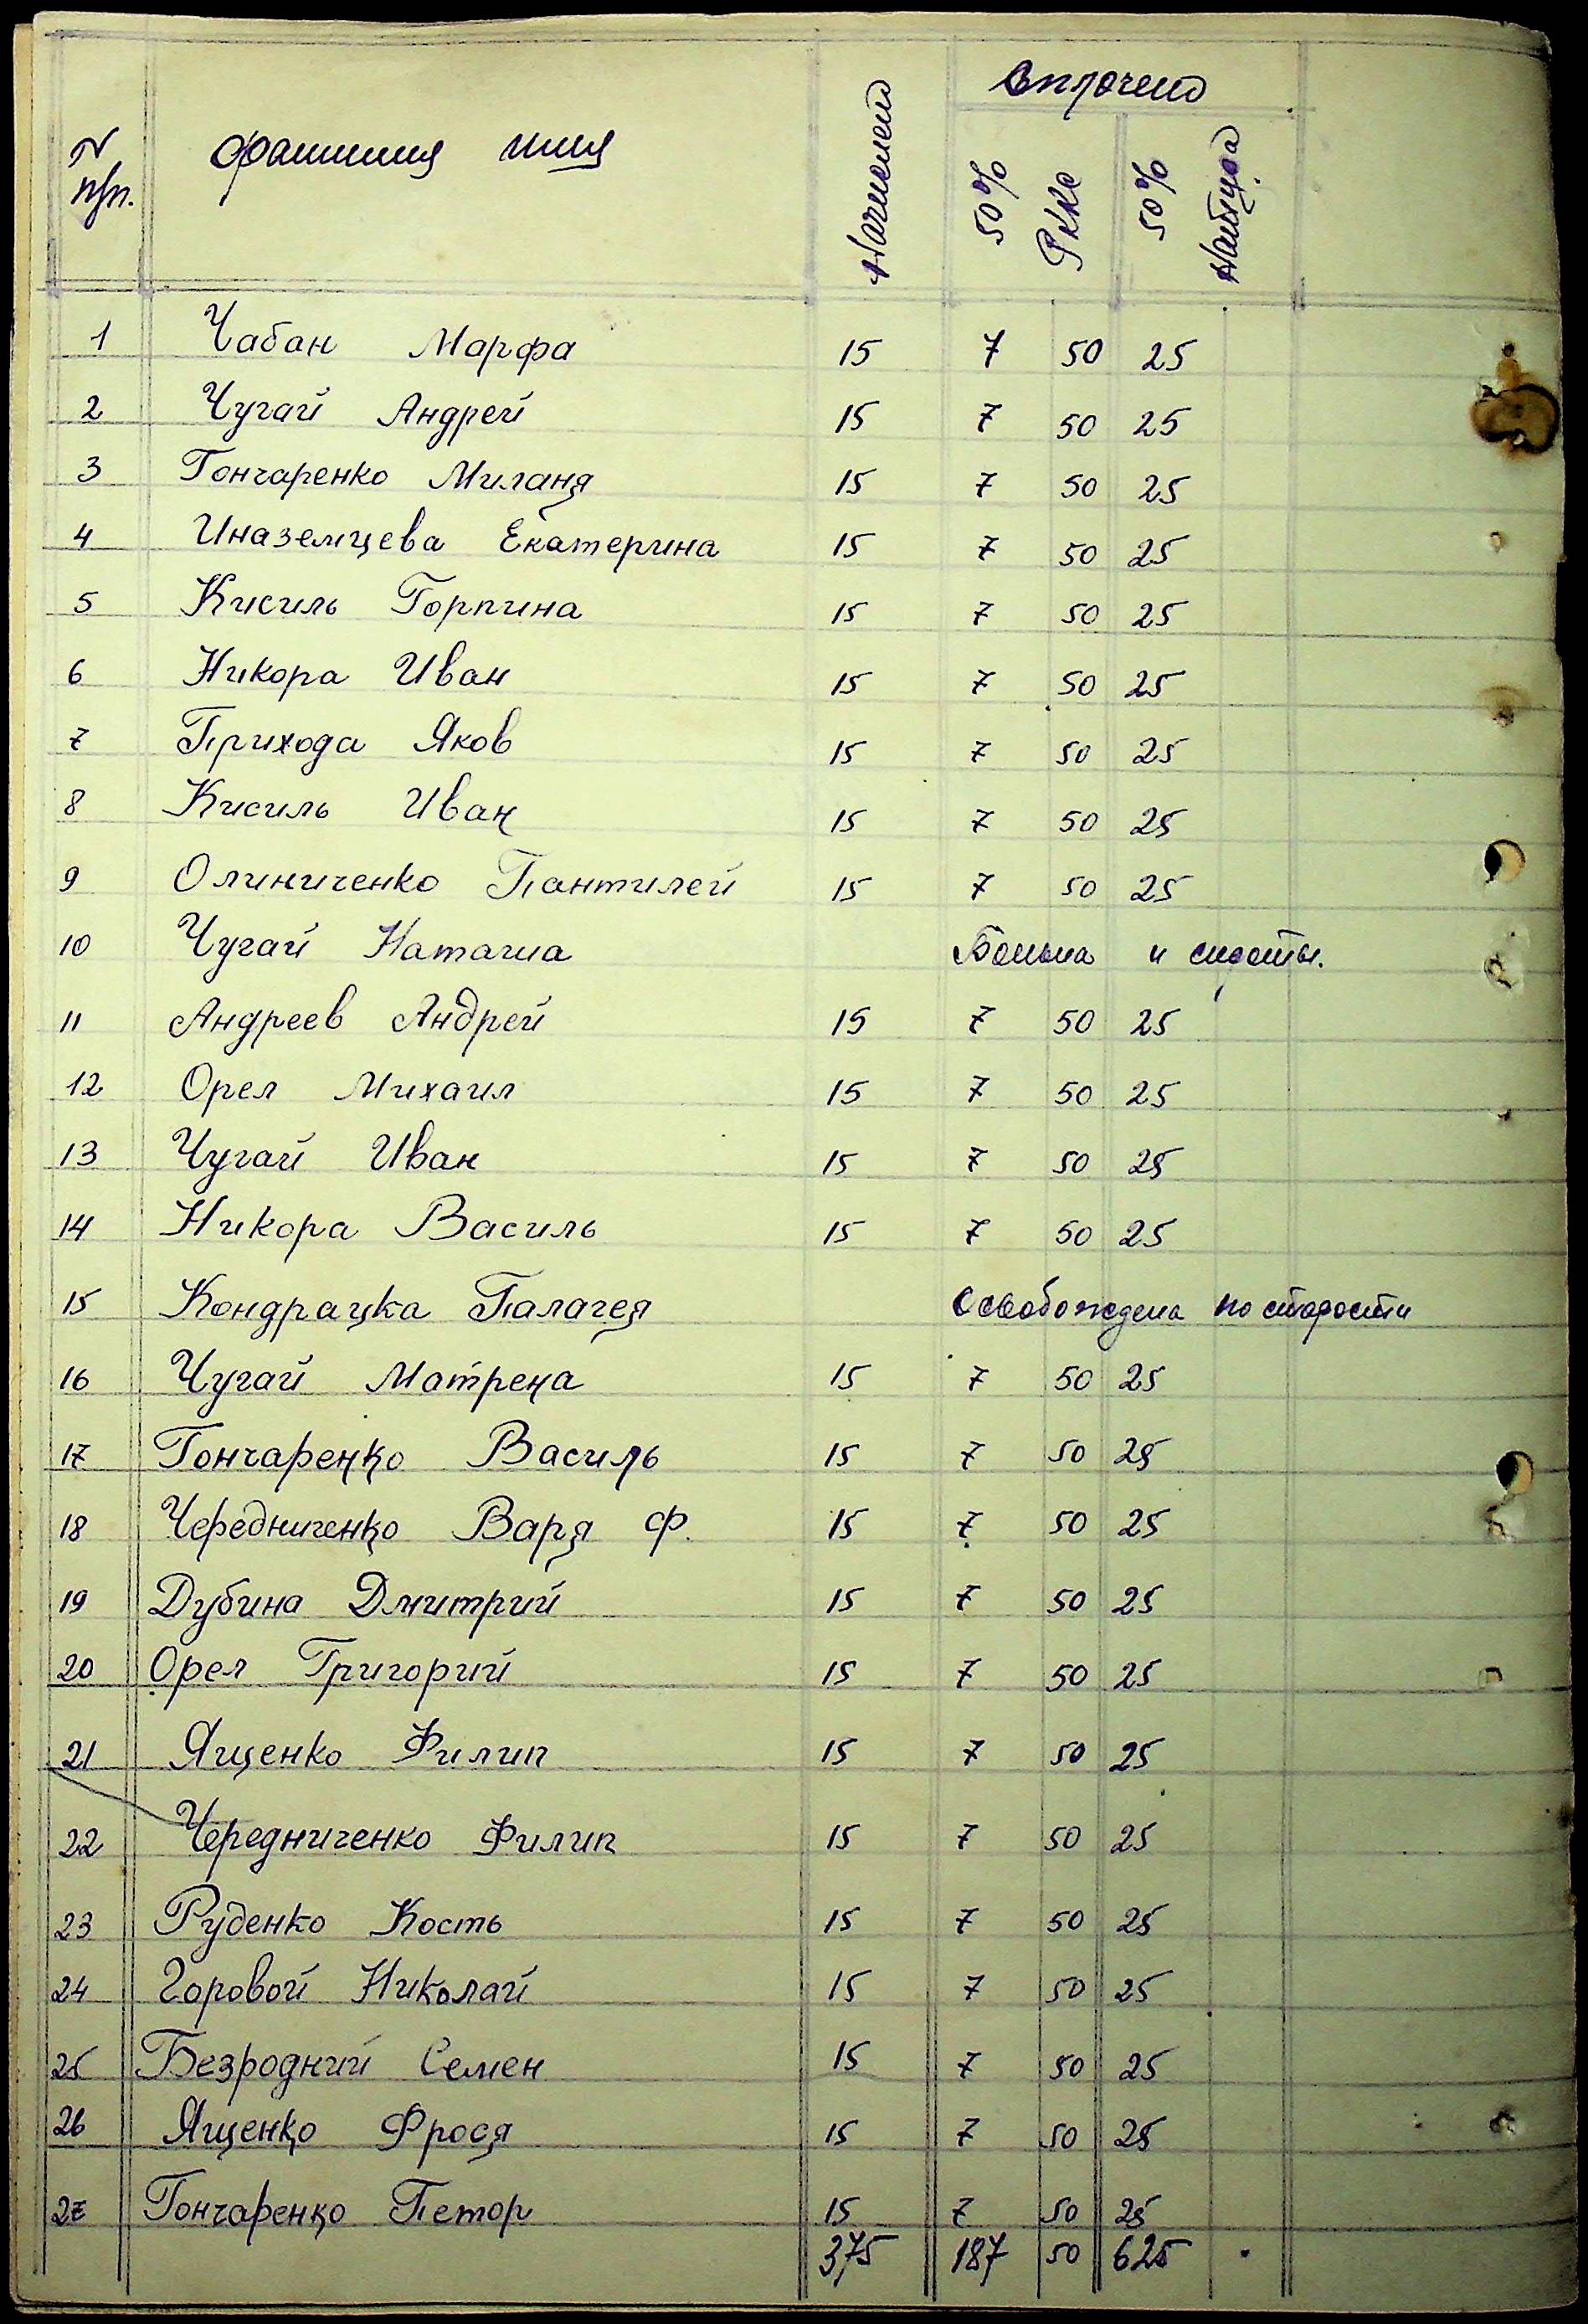 N п/п. фамилия имя Начислено Оплочено 50% 50%
1 Чабан Марфа 15 7 50 25
2 Чугай Андрей 15 7 50 25
3 Гончаренко Миланя 15 7 50 25
4 Иназемцева Екатерина 15 7 50 25
5 Кисиль Горпина 15 7 50 25
6 Никора Иван 15 7 50 25
7 Прихода Яков 15 7 50 25
8 Кисиль Иван 15 7 50 25
9 Олиниченко Пантилей 15 7 50 25
10 Чугай Наташа и сироты.
11 Андреев Андрей 15 7 50 25
12 Орел Михаил 15 7 50 25
13 Чугай Иван 15 7 50 25
14 Никора Василь 15 7 50 25
15 Кондрацка Палагея Освобождена по старости
16 Чугай Матрена 15 7 50 25
17 Гончаренко Василь 15 7 50 25
18 Чередниченко Варя Ф. 15 7 50 25
19 Дубина Дмитрий 15 7 50 25
20 Орел Григорий 15 7 50 25
21 Ященко Филип 15 7 50 25
22 Чередниченко Филип 15 7 50 25
23 Руденко Кость 15 7 50 25
24 Горовой Николай 15 7 50 25
25 Безродний Семен 15 7 50 25
26 Ященко Фрося 15 7 50 25
27 Гончаренко Петор 15 7 50 25
375 187 50 625